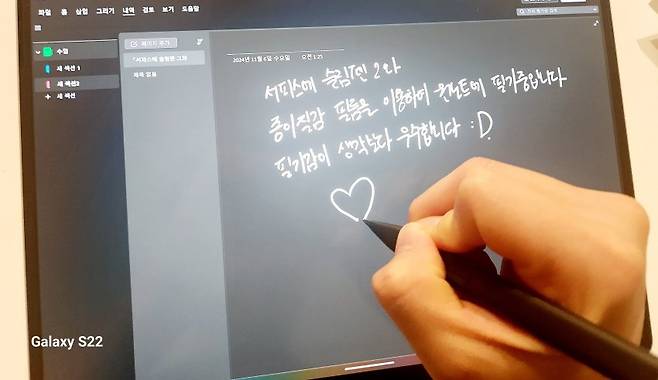 파일 홈 삽입 그리기 내역 검토 보기 도움말
수업
새 섹션 1
새 섹션2
+ 새 섹션
페이지 추가
제목 없음
2024년 11월 6일 수요일 오전 1:25
서피스에 슬림펜 2와
종이질감 필름을 이용하여 원노트에 필기중입니다
필기감이 생각보다 우수합니다 :D.
Galaxy S22